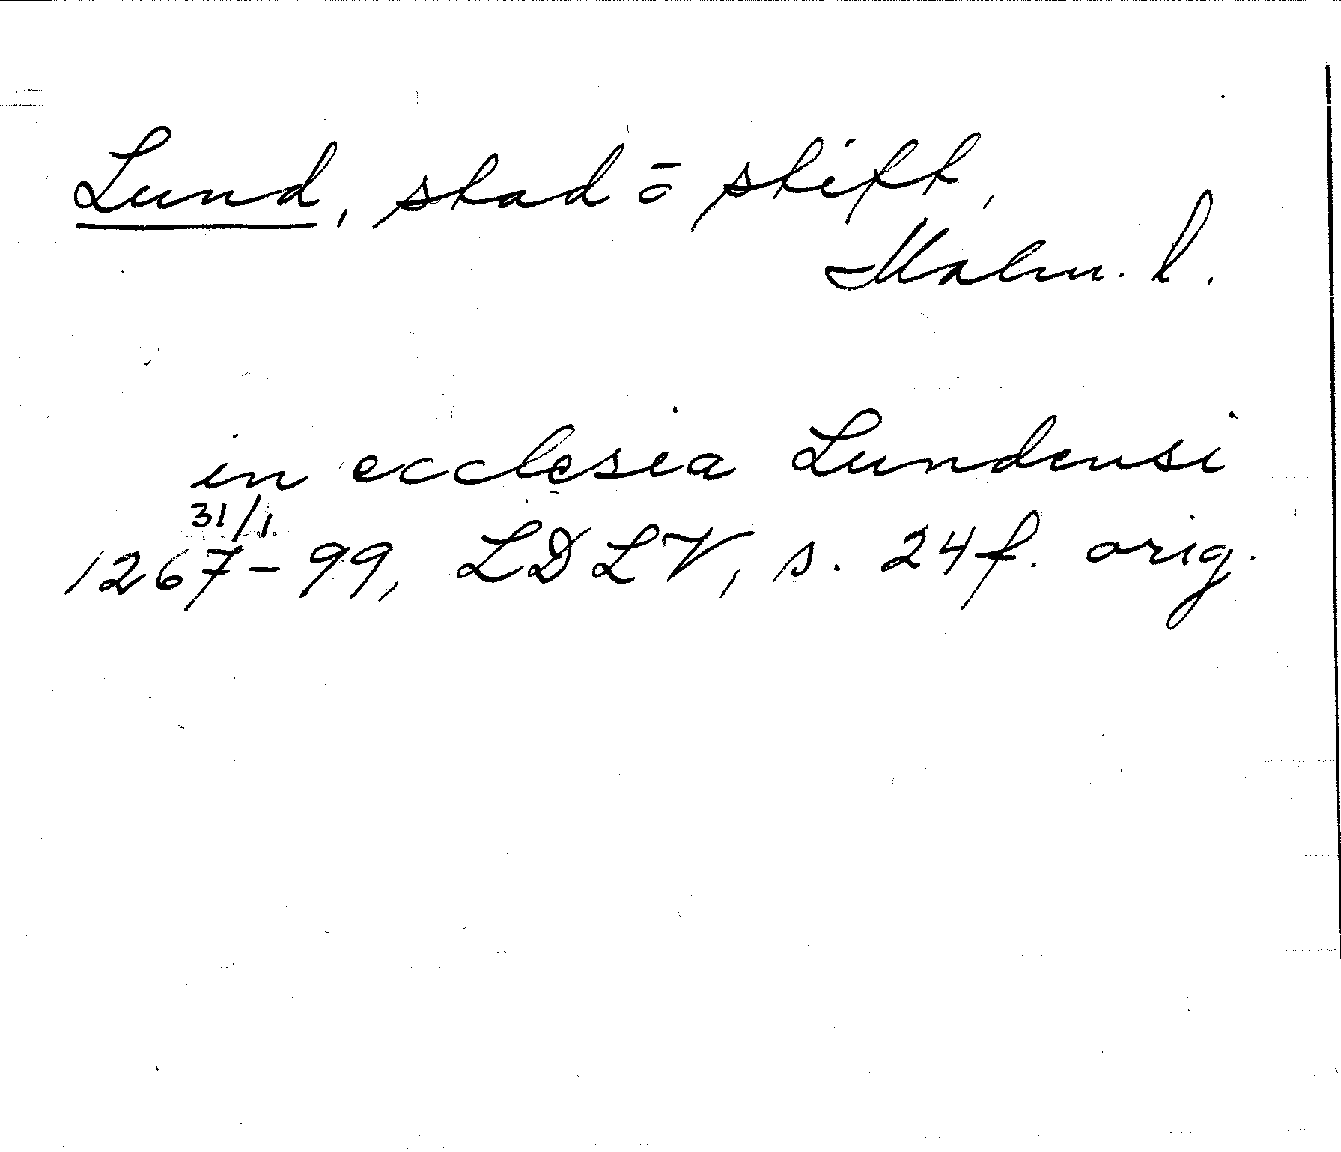 Lund, stad o stift,
Malm. l.
in ecclesia Lundensi
31/1
1267-99, LDLV, s. 24f. orig.